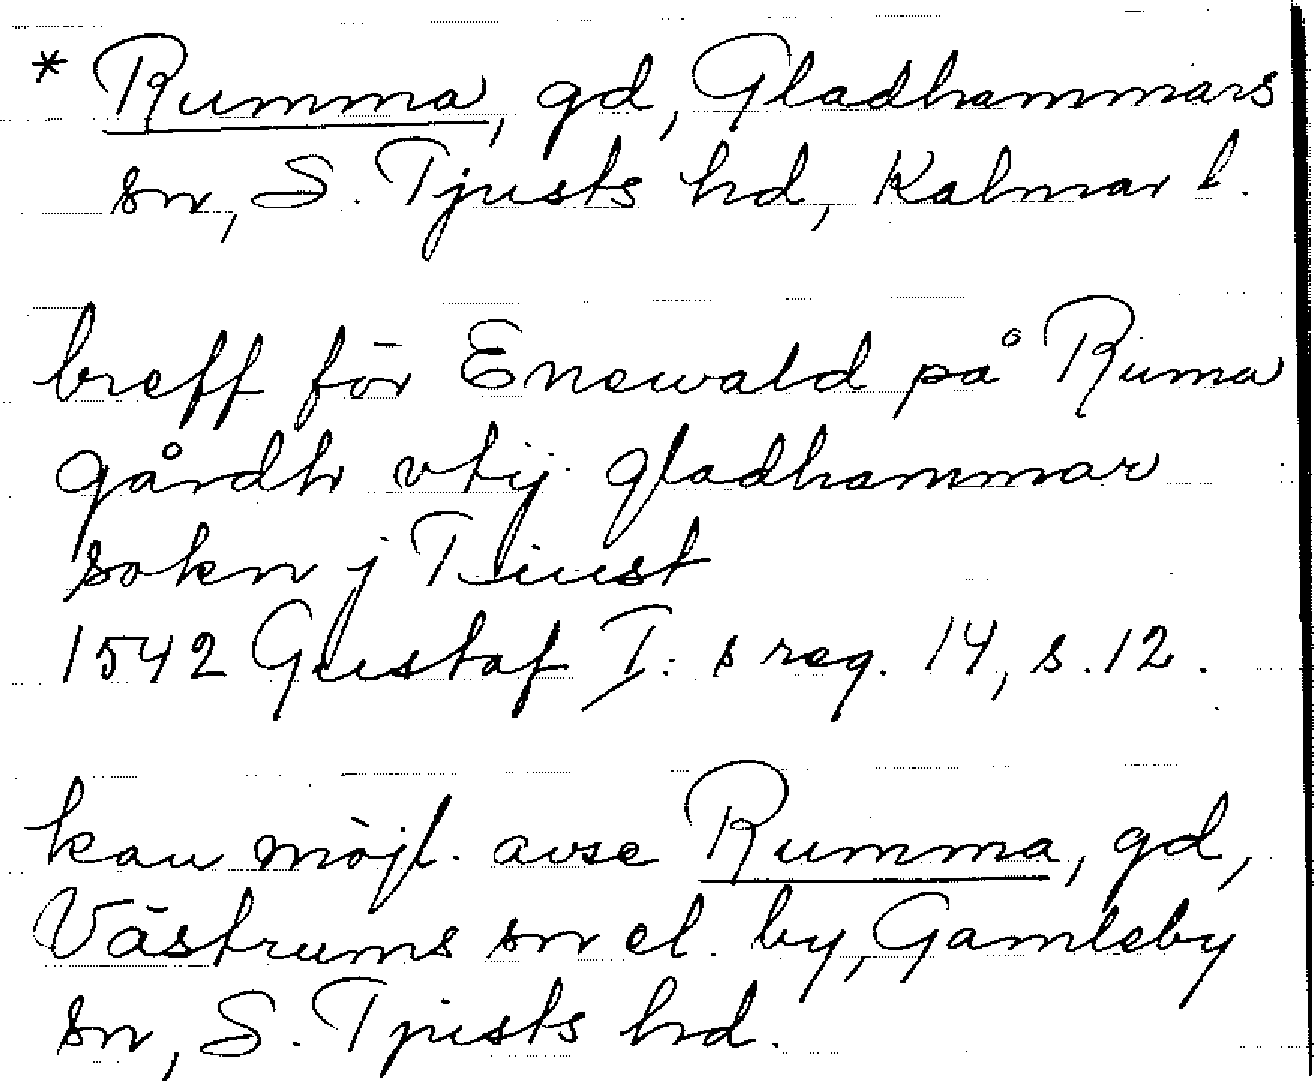 * Rumma, gd, Gladhammars
sn, S. Tjusts hd, Kalmar l.
breff för Enewald på Ruma
gårdh vtij gladhammar
sokn j Tiust
1542 Gustaf I: s reg. 14, s. 12.
kan möjl. avse Rumma, gd,
Västrums sn el. by, Gamleby
sn, S. Tjusts hd.